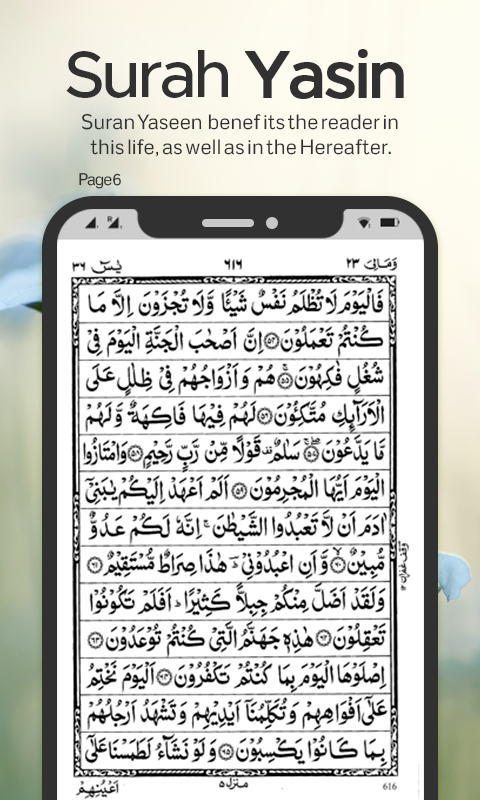 Surah Yasin
Suran Yaseen benefits the reader in
this life, as well as in the Hereafter.
Page6
R
وَمَالِیَ ۲۳ ۶۱۶ یٰسٓ ۳۶
فَالْیَوْمَ لَا تُظْلَمُ نَفْسٌ شَیْئًا وَّلَا تُجْزَوْنَ اِلَّا مَا
كُنْتُمْ تَعْمَلُوْنَ ﴿۵۴﴾ اِنَّ اَصْحٰبَ الْجَنَّةِ الْیَوْمَ فِیْ
شُغُلٍ فٰكِهُوْنَ ﴿۵۵﴾ هُمْ وَاَزْوَاجُهُمْ فِیْ ظِلٰلٍ عَلَی
الْاَرَآىِٕكِ مُتَّكِـُٔوْنَ ﴿۵۶﴾ لَهُمْ فِیْهَا فَاكِهَةٌ وَّلَهُمْ
مَّا یَدَّعُوْنَ ﴿۵۷﴾ سَلٰمٌ قَوْلًا مِّنْ رَّبٍّ رَّحِیْمٍ ﴿۵۸﴾ وَامْتَازُوا
الْیَوْمَ اَیُّهَا الْمُجْرِمُوْنَ ﴿۵۹﴾ اَلَمْ اَعْهَدْ اِلَیْكُمْ یٰبَنِیْۤ
اٰدَمَ اَنْ لَّا تَعْبُدُوا الشَّیْطٰنَ ۚ اِنَّهٗ لَكُمْ عَدُوٌّ
مُّبِیْنٌ ﴿۶۰﴾ وَّاَنِ اعْبُدُوْنِیْ ؔ هٰذَا صِرَاطٌ مُّسْتَقِیْمٌ ﴿۶۱﴾
وَلَقَدْ اَضَلَّ مِنْكُمْ جِبِلًّا كَثِیْرًا ؕ اَفَلَمْ تَكُوْنُوْا
تَعْقِلُوْنَ ﴿۶۲﴾ هٰذِهٖ جَهَنَّمُ الَّتِیْ كُنْتُمْ تُوْعَدُوْنَ ﴿۶۳﴾
اِصْلَوْهَا الْیَوْمَ بِمَا كُنْتُمْ تَكْفُرُوْنَ ﴿۶۴﴾ اَلْیَوْمَ نَخْتِمُ
عَلٰۤی اَفْوَاهِهِمْ وَتُكَلِّمُنَاۤ اَیْدِیْهِمْ وَتَشْهَدُ اَرْجُلُهُمْ
بِمَا كَانُوْا یَكْسِبُوْنَ ﴿۶۵﴾ وَلَوْ نَشَآءُ لَطَمَسْنَا عَلٰۤی
وقف غفران
اَعْیُنِهِمْ
منزل ۵
616